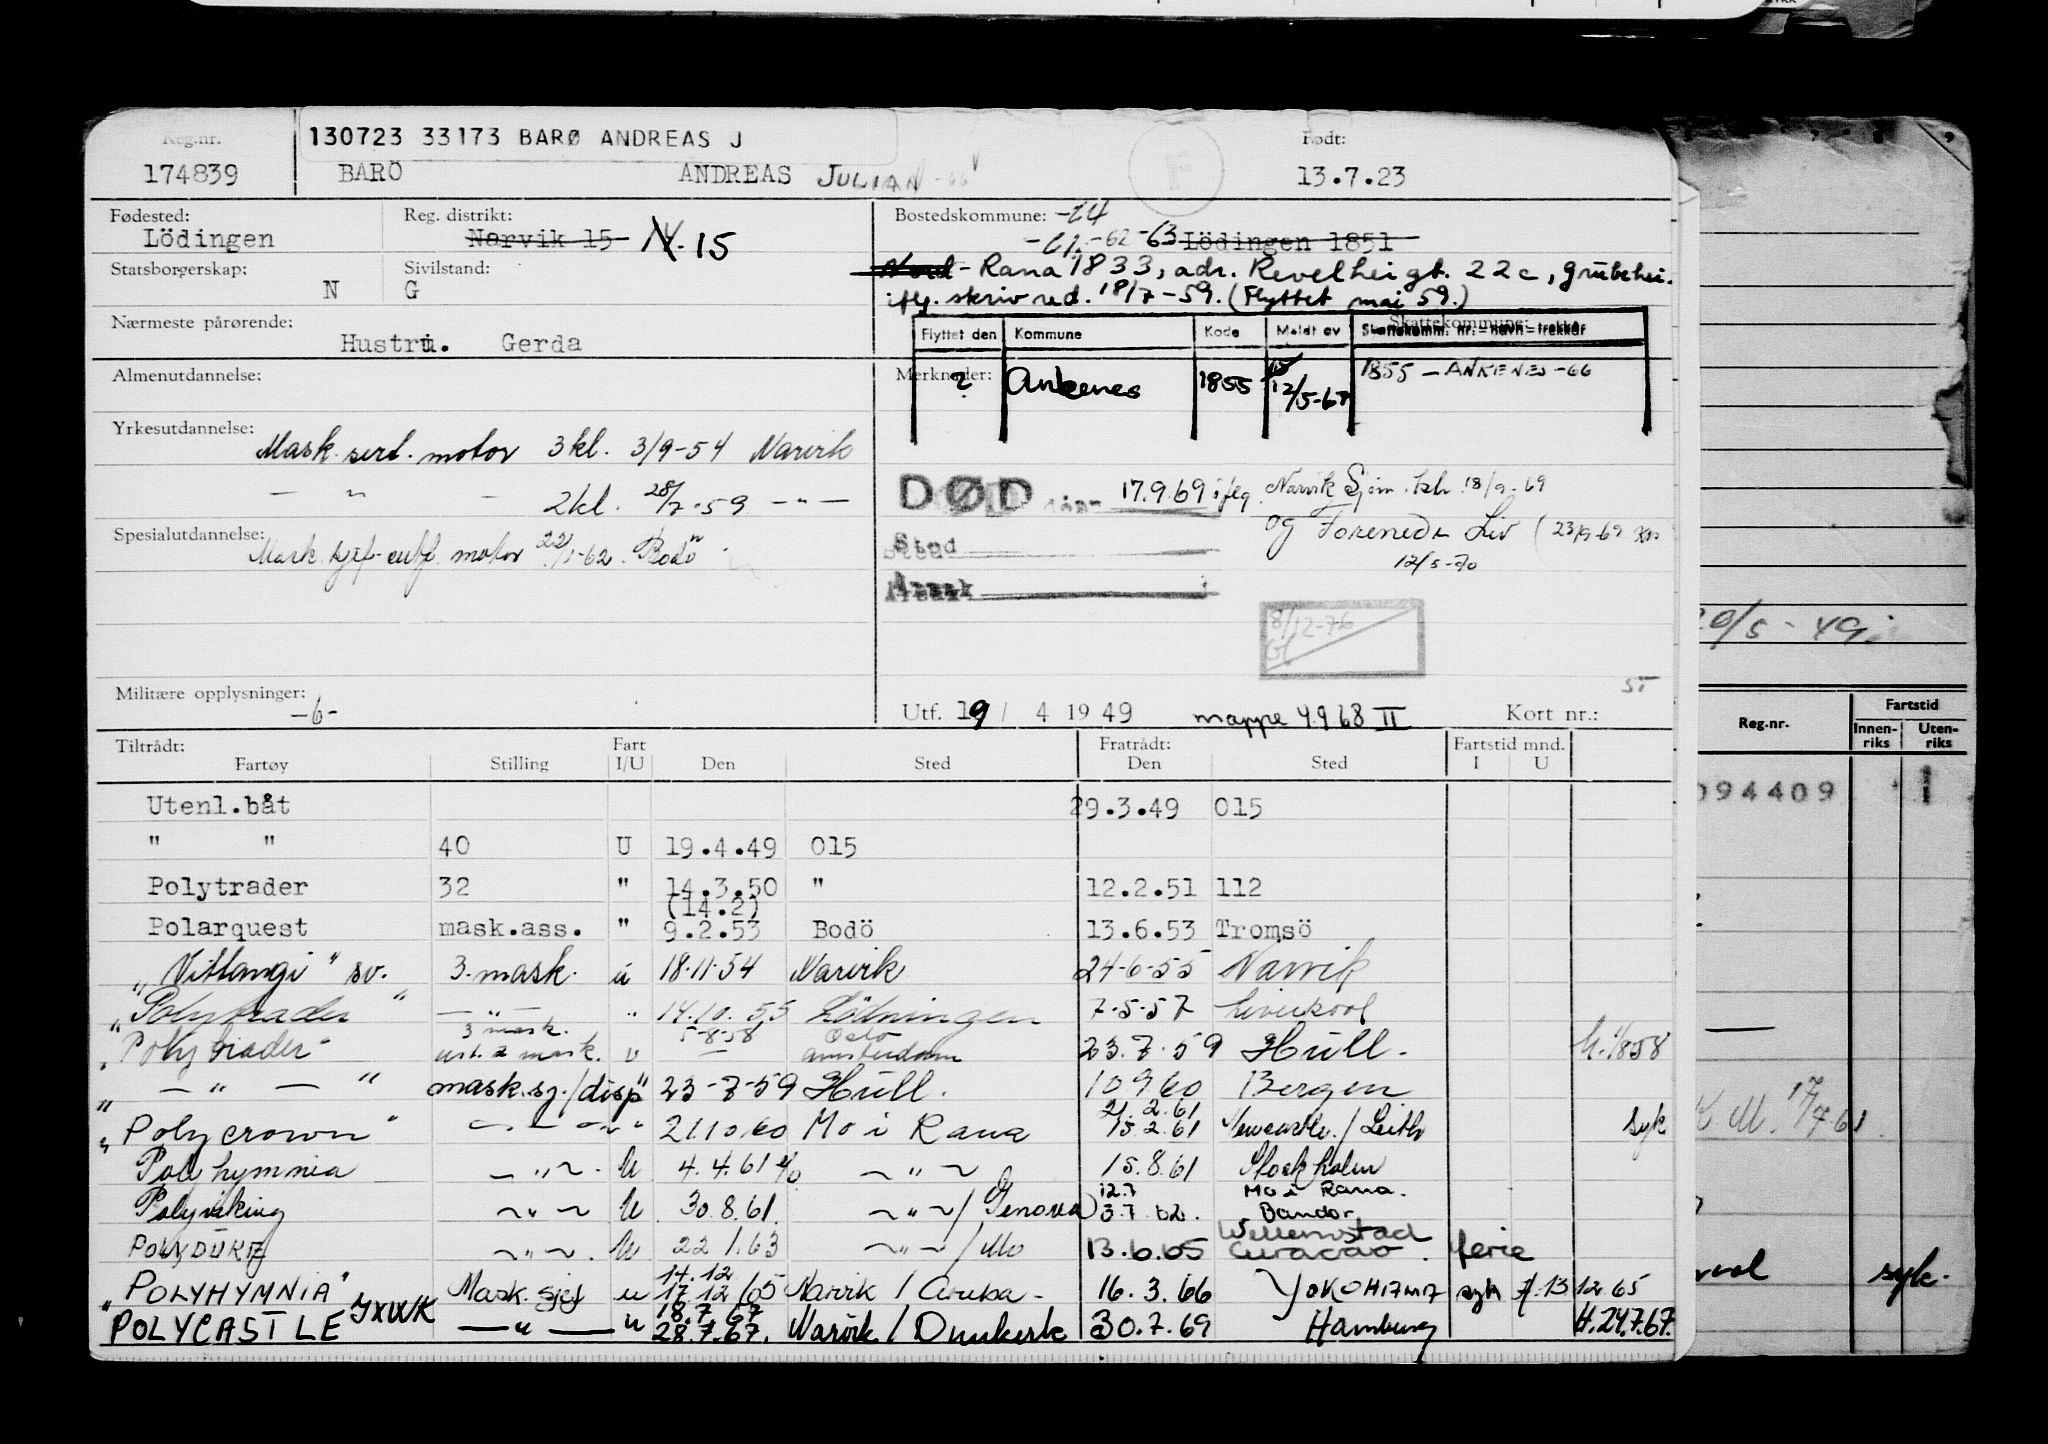 Reg.nr. 130723 33173 BARØ ANDREAS J Født:
174839 BARÖ ANDREAS JULIAN -66 F 13.7.23
Fødested: Lödingen
Reg. distrikt: Narvik 15 N. 15
Bostedskommune: -64
-61 -62 -63 Lödingen 1851
Nord - Rana 1833, adr. Revelheigt. 22c, grubehei.
iflg. skriv red. 18/7-59. (Flyttet mai 59.)
Statsborgerskap: N
Sivilstand: G
Nærmeste pårørende: Hustru. Gerda
Skattekommune:
Flyttet den Kommune Kode Meldt av Skattekomm. nr. - navn - trekkår
Almenutdannelse:
Merknader: ? Ankenes 1855 12/5-67 1855 - ANKENES -66
Yrkesutdannelse: Mask. sert. motor 3 kl. 3/9-54 Narvik
— " — 2 kl. 28/7-59 — " —
DØD 17.9.69 ifلg. Narvik Sjøm. 18/9-69
og Forenede Liv (23/9-69
12/5-70
Sted
Årsak
Spesialutdannelse: Mask. sjef motor 22/1-62 Bodö
8/12-76
Gl.
ST
Militære opplysninger: -6-
Utf. 19/ 4 1949 mappe 4.9.68 II Kort nr.:
20/5-49
Tiltrådt: Fart Fratrådt: Fartstid mnd.
Fartøy Stilling I/U Den Sted Den Sted I U
Utenl.båt 29.3.49 015
" " 40 U 19.4.49 015
Polytrader 32 " 14.3.50 " 12.2.51 112
(14.2)
Polarquest mask.ass. " 9.2.53 Bodö 13.6.53 Tromsö
"Vittangi" sv. 3. mask. u 18.11.54 Narvik 24-6-55 Narvik
"Polytrader" — " — " 14.10.55 Lödingen 7-5-57 Liverpool
3 mask. 5-8-58 Oslo
"Polytrader" 2 mask. u — Amsterdam 23.7.59 Hull.
" — " — " mask.sj./disp " 23-7-59 Hull. 10 9 60 Bergen
21.2.61
"Polycrown" — " — " 21.10.60 Mo i Rana 15.2.61 Newcastle / Leith syk
Polyhymnia — " — U 4.4.61 — " — 15.8.61 Stockholm
12.7 Mo i Rana.
Polyviking — " — U 30.8.61. — " — / Genova 3.7 62. Bandar
Willemstad
POLYDUKE — " — U 22.1.63 — " — / Mo 13.6.65 Curacao. ferie
14.12
"POLYHYMNIA" Mask. sjef u 17.12/65 Narvik / Aruba - 16.3.66 YOKOHAMA syk 13 12.65
18.7 67
POLYCASTLE JXWK — " — u 28.7.67. Narvik / Dunkerk 30.7.69 Hamburg H.24.7.67.
Reg.nr. Fartstid
Innen-riks Uten-riks
094409 1
17/7-61
syk.